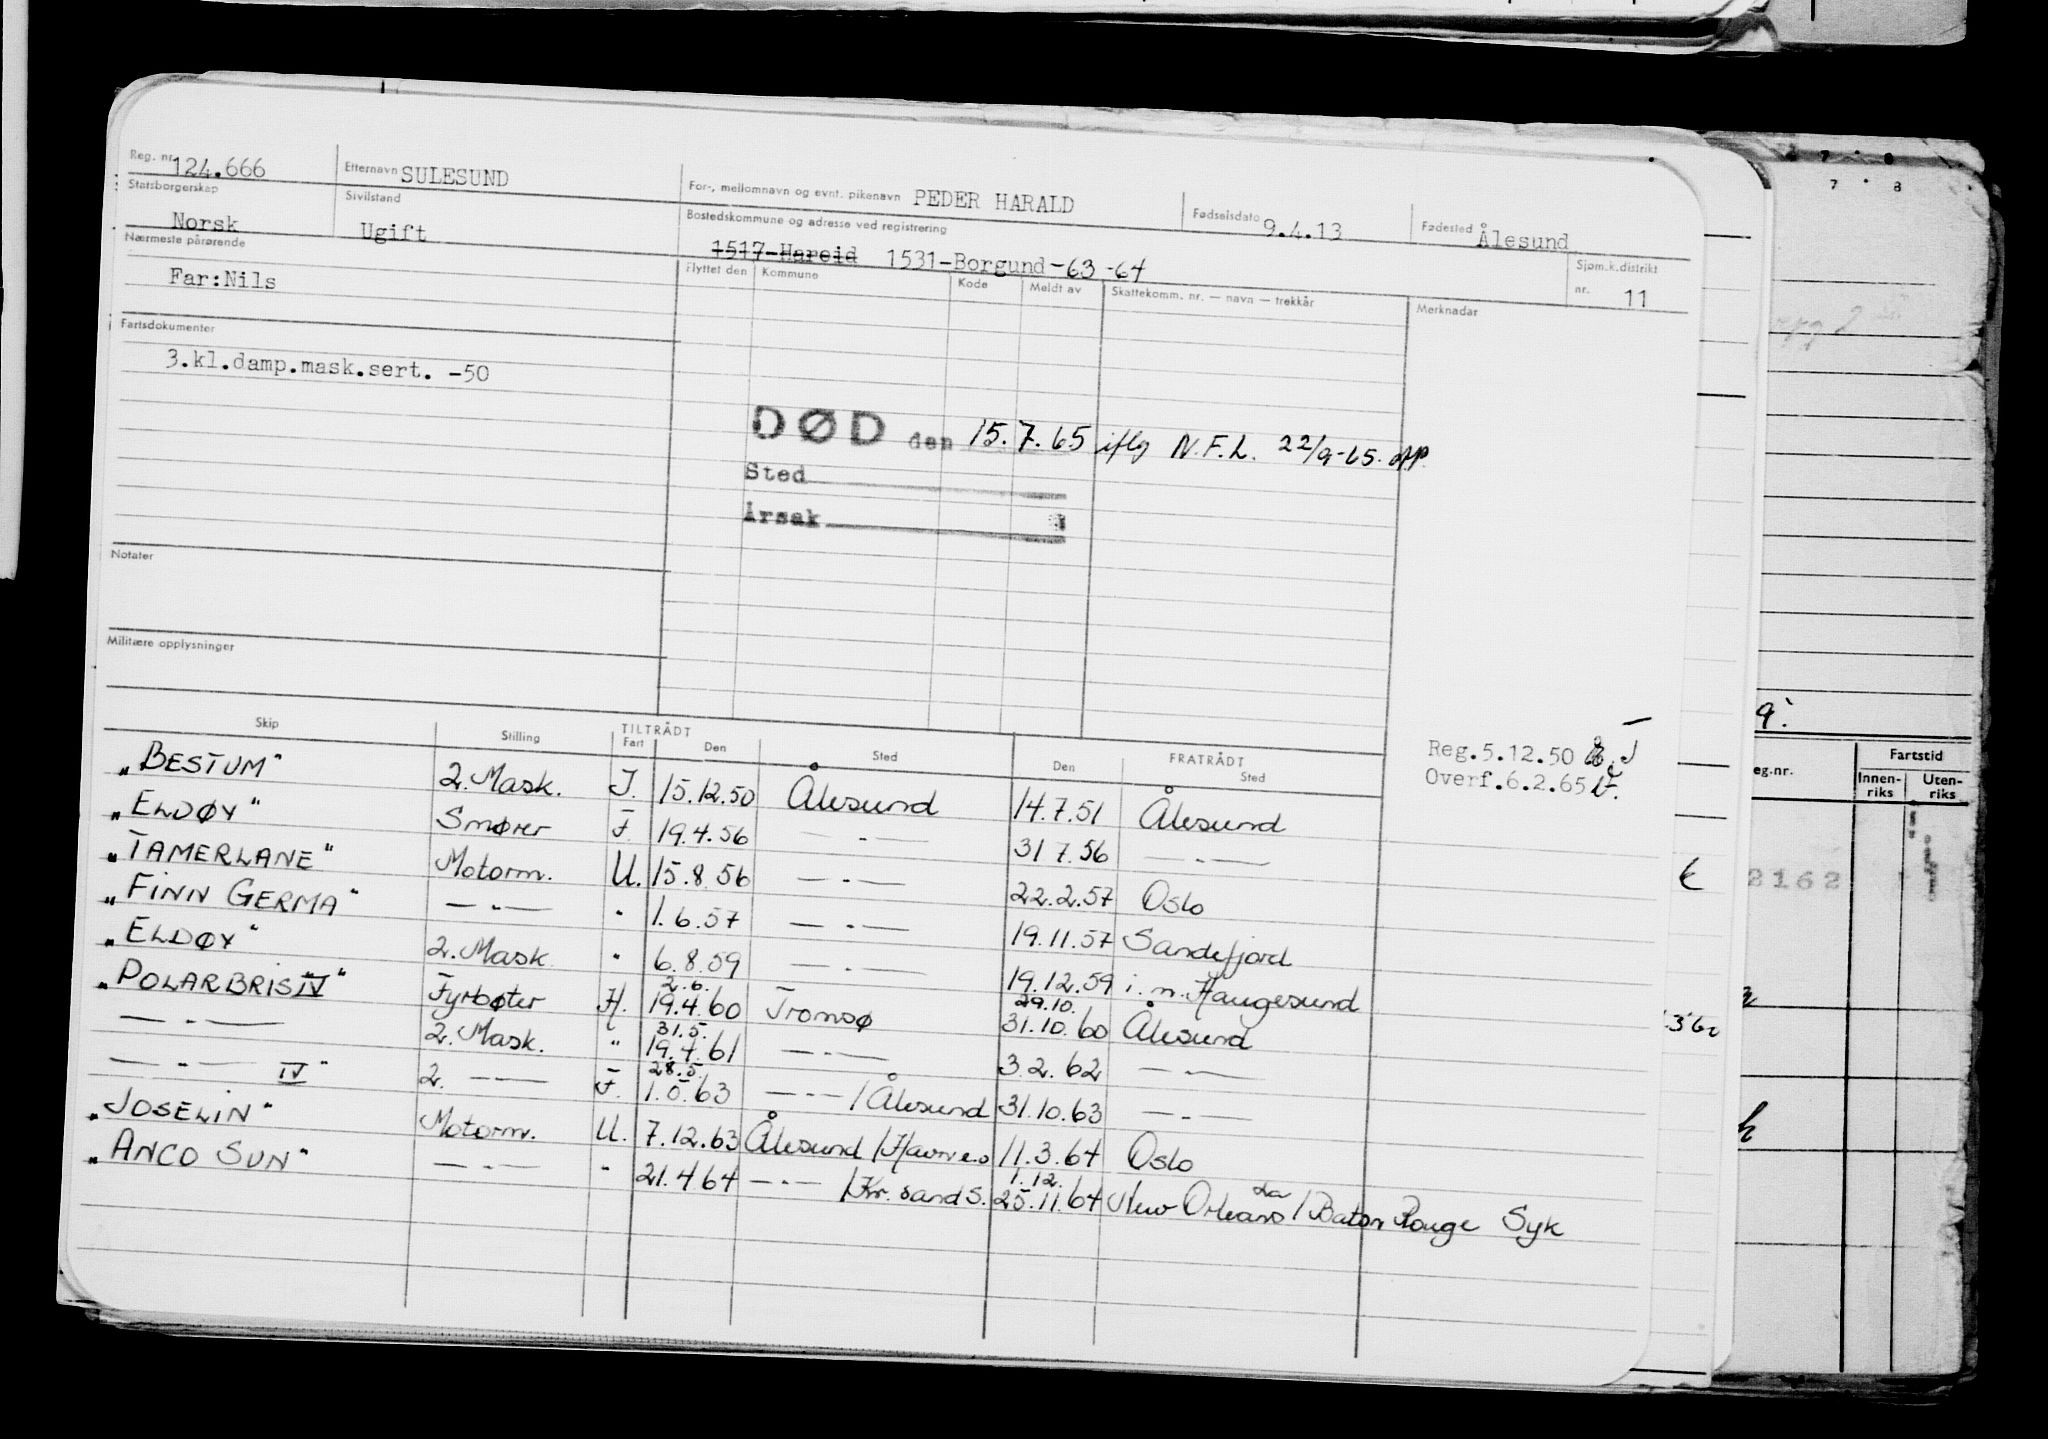 Reg. nr. 124.666 Etternavn SULESUND For-, mellomnavn og evnt. pikenavn PEDER HARALD Fødselsdato 9.4.13 Fødested Ålesund
Statsborgerskap Norsk Sivilstand Ugift Bostedskommune og adresse ved registrering 1517-Hareid 1531-Borgund-63-64 Sjøm.k.distrikt nr. 11
Nærmeste pårørende Flyttet den Kommune Kode Meldt av Skattekomm. nr. — navn — trekkår Merknader
Far:Nils
Fartsdokumenter
3.kl.damp.mask.sert. -50
DØD den 15.7.65 iflg N.F.L. 22/9-65. opp.
Sted
Årsak
Notater
Militære opplysninger
Reg.5.12.50
Overf.6.2.65
TILTRÅDT FRATRÅDT
Skip Stilling Fart Den Sted Den Sted
„BESTUM" 2. Mask. I. 15.12.50 Ålesund 14.7.51 Ålesund
„ELDØY" Smører F. 19.4.56 —"— 31 7.56 —"—
„TAMERLANE" Motorm. U. 15.8 56 —"— 22.2.57 Oslo
„FINN GERMA" —"— " 1.6.57 —"— 19.11.57 Sandefjord
„ELDØY" 2. Mask " 6.8.59 —"— 19.12.59 i.n. Haugesund
2.6. 29.10.
„POLARBRIS IV" Fyrbøter H. 19.4.60 Tromsø 31.10.60 Ålesund
31.5.
—"— 2. Mask. " 19.4.61 —"— 3 2.62 —"—
28.5.
—"— IV" 2. —"— F. 1.5.63 —"— / Ålesund 31.10.63 —"—
„JOSELIN" Motorm. U. 7.12.63 Ålesund / Havnes 11.3.64 Oslo
1.12.
„ANCO SUN" —"— " 21.4 64 —"— / Kr. sand S. 25.11.64 New Orleans La / Baton Rouge Syk
7 8
7 8
eg.nr. Fartstid
Innen-riks Uten-riks
2162